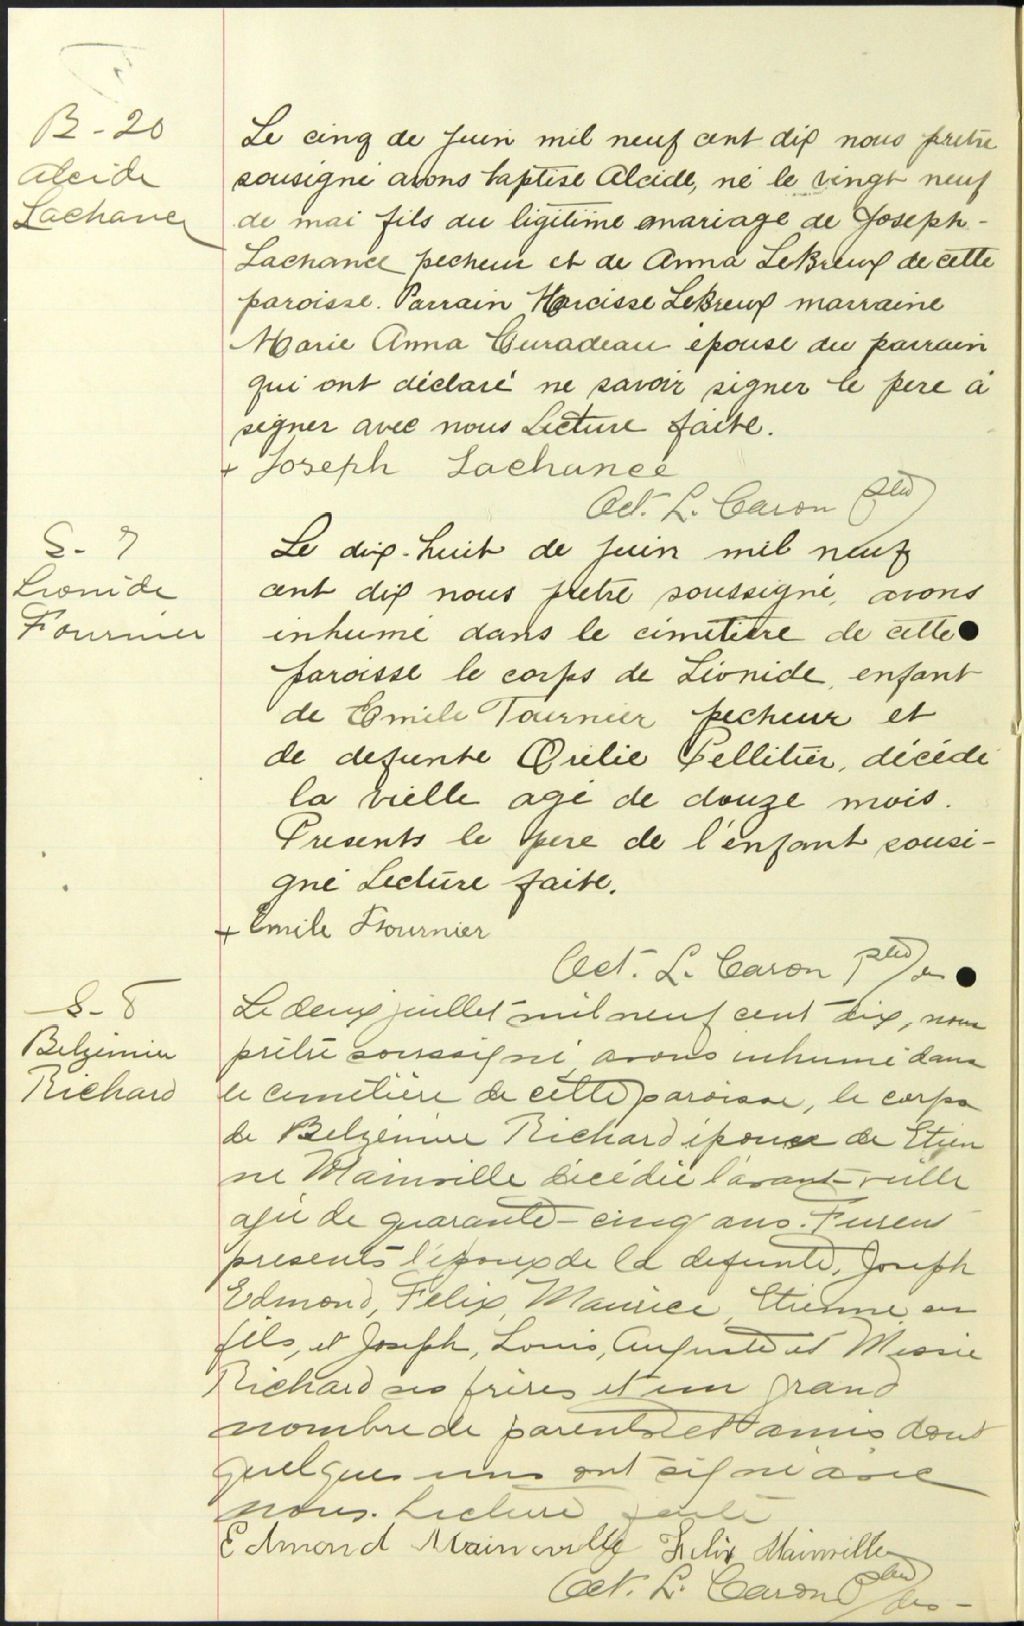 B - 20
Alcide
Lachance
Le cinq de Juin mil neuf cent dix nous pretre
sousigné avons baptisé Alcide, né le vingt neuf
de mai fils du ligitime mariage de Joseph -
Lachance pecheur et de Anna LeBreux de cette
paroisse. Parrain Narcisse LeBreux marraine
Marie Anna Curadeau épouse du parrain
qui ont déclaré ne savoir signer le pere a
signer avec nous Lecture faite.
+ Joseph Lachance
Oct. L. Caron ptre
S - 7
Léonide
Fournier
Le dix-huit de juin mil neuf
cent dix nous pretre soussigné, avons
inhumé dans le cimetière de cette
paroisse le corps de Léonide, enfant
de Emile Fournier pecheur et
de defunte Orélie Pelletier, décédé
la vielle agé de douze mois.
Presents le pere de l'enfant sousi-
gné Lecture faite.
+ Emile Fournier
Oct. L. Caron ptre
S - 8
Belzémire
Richard
Le deux juillet mil neuf cent dix, nous
prêtre soussigné avons inhumé dans
le cimetière de cette paroisse, le corps
de Belzémire Richard épouse de Etien
ne Mainville décédée l'avant-veille
agée de quarante-cinq ans. Furent
presents l'époux de la defunte, Joseph
Edmond, Felix, Maurice, Etienne ses
fils, et Joseph, Louis, Auguste et Messie
Richard ses frères et un grand
nombre de parents et amis dont
quelques uns ont signé avec
nous. Lecture faite
Edmond Mainville Felix Mainville
Oct. L. Caron Ptre